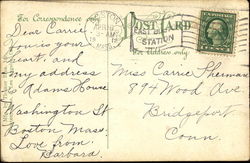 For Correspondence only
POST CARD
STATION
For Address only
Dear Carrie
You is your
heart, and
my address
is Adams House
Washington St
Boston Mass.
Love from
Barbara.
Miss Carrie Sherman
894 Wood Ave
Bridgeport
Conn.